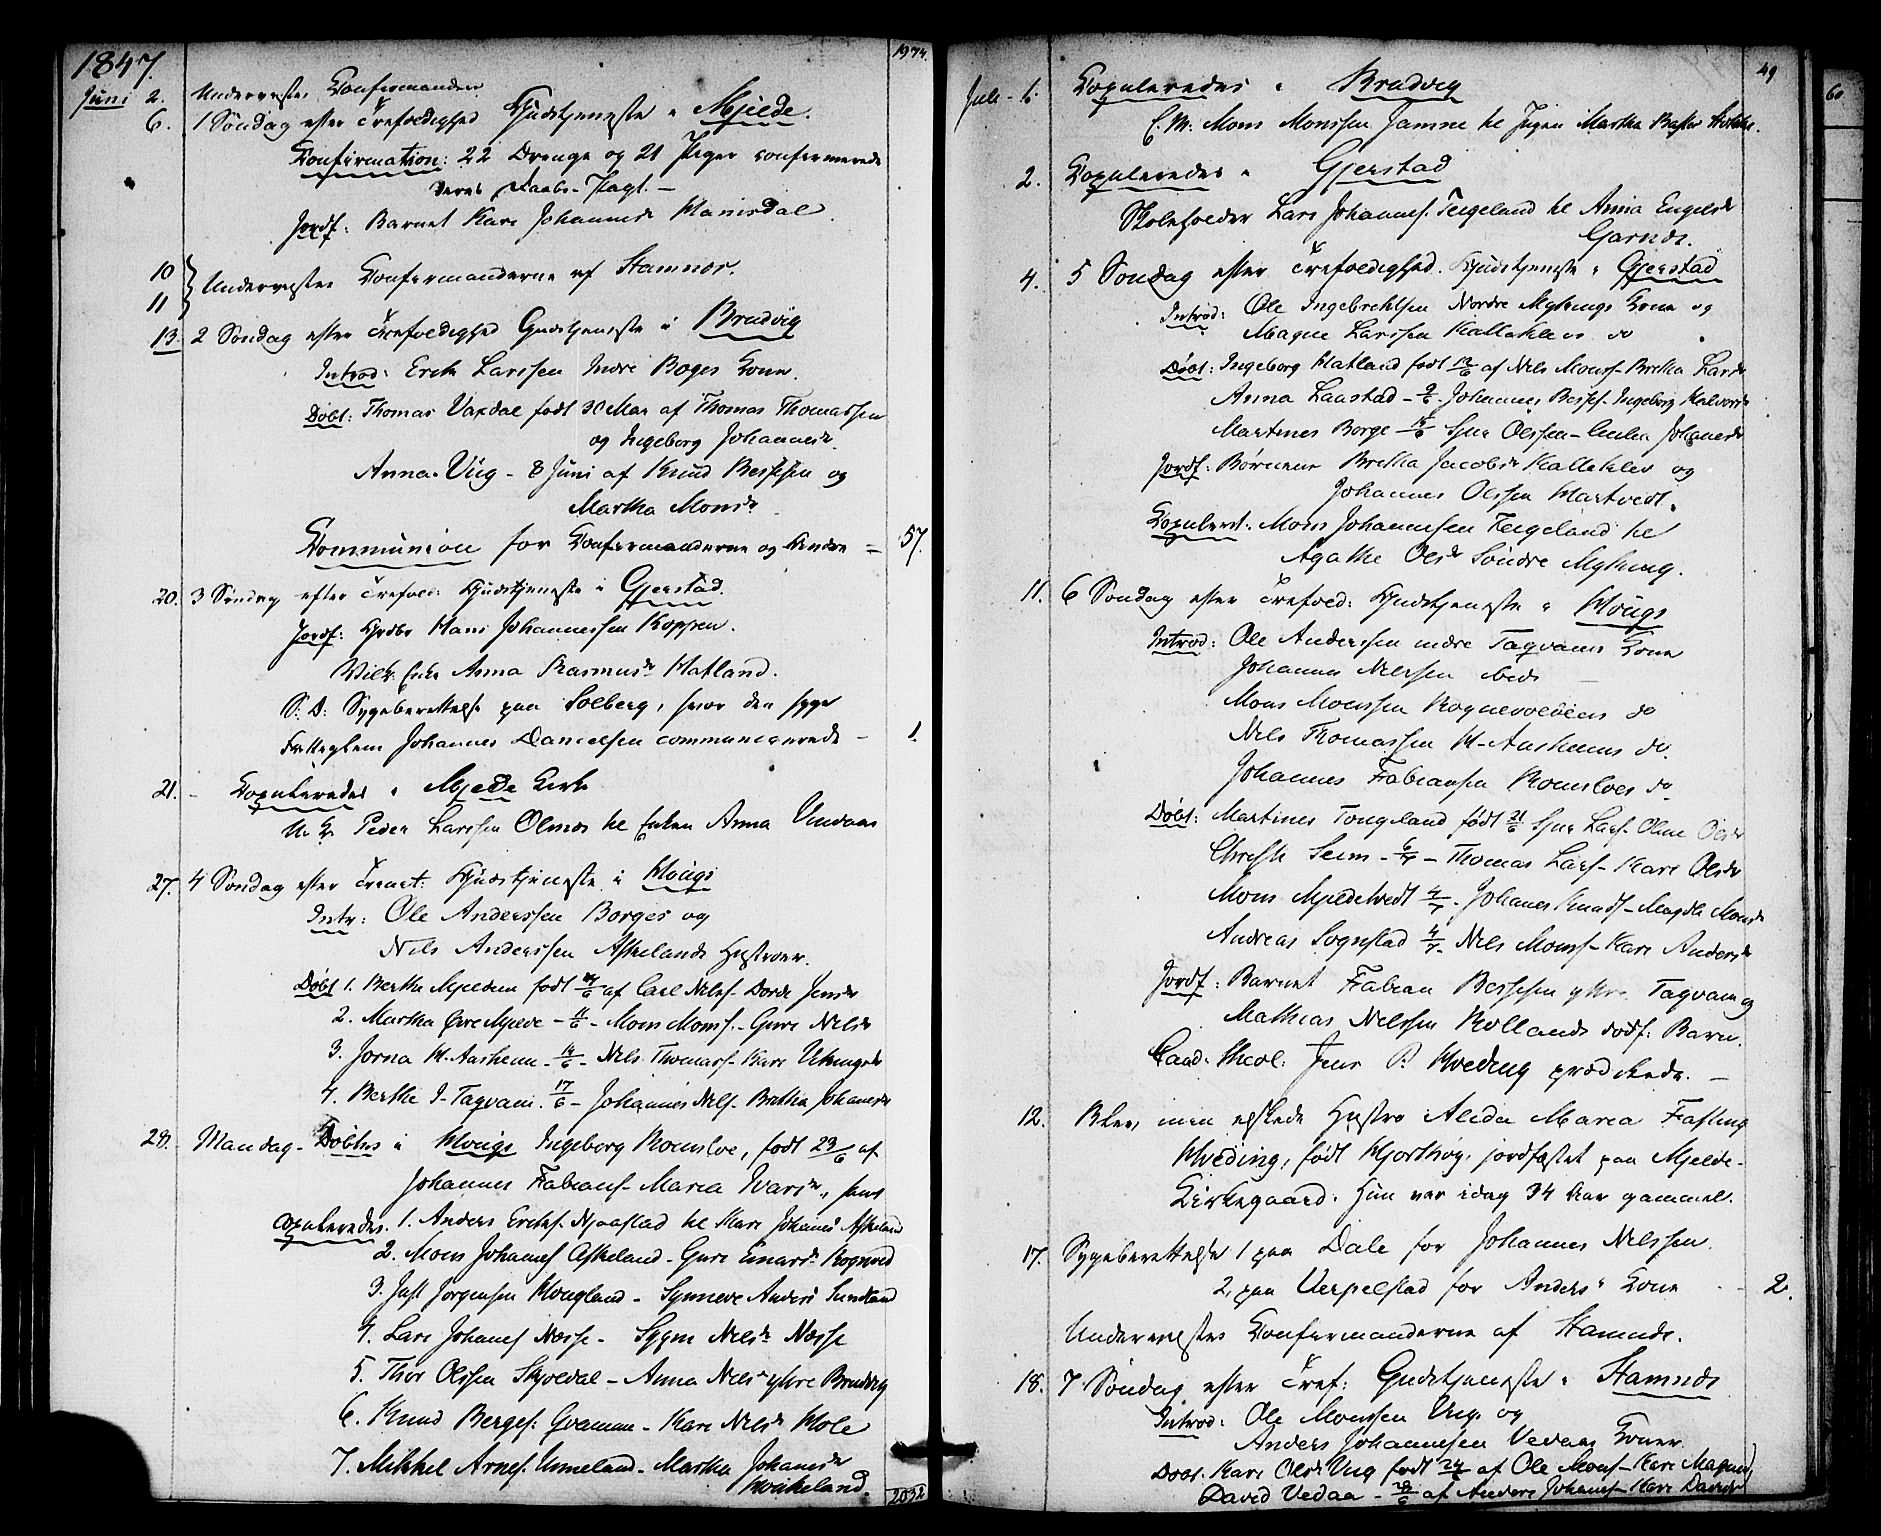 1847.
1974.
Juni 2. Underviste Confirmander
6. 1 Søndag efter Trefoldighed Gudstjeneste i Mjelde.
Confirmation: 22 Drenge og 21 Piger confirmerede
deres Daabs-Pagt. —
Jordf: Barnet Kari Johannesdr Hanisdal.
10 11 } Undervistes Confirmanderne af Stamnes.
13. 2 Søndag efter Trefoldighed Gudstjeneste i Brudvig
Introd: Erik Larssen Indre Boges Kone.
Døbt: Thomas Vaxdal født 30 Mai af Thomas Thomassen
og Ingeborg Johannesdr
Anna Viig - 8 Juni af Knud Bersesen og
Martha Monsdr
Communion for Confirmanderne og Andre = 57.
20. 3 Søndag efter Trefold: Gudstjeneste i Gjerstad.
Jordf: Hans Johannessen Koppen.
Anna Rasmusdr Hatland.
S: D: Sygeberettelse paa Solberg, hvor den syge
Fattiglem Johannes Danielsen communicerede — 1
21. - Copuleredes i Mjelde Kirke
U: K: Peder Larssen Olsnes til Enken Anna
27. 4 Søndag efter Trenit: Gudstjeneste i Houg
Intr: Ole Anderssen Borges og
Nils Anderssen Askelands Hustroer.
Døbt 1. Bertha Mjelden født af Carl Nilss- Dorde Jensdr
2. Martha Øvre Mjelde - 11/6 - Mons Monss. - Guri Nilsdr
3. Jorna H. Aasheim - 14/6 - Nils Thomass- Kari
4. Berthe I- Tagvam. 17/6 - Johannes Nils- Britha Johansdr
28. Mandag - Døbtes i Hougs Ingeborg Romsloe, født 23/6 af
Johannes Fabianss- Maria Ivarsdr, samt
Copuleredes. 1. Anders Erikss. Njaastad til Kari Johansdr Askeland
2. Mons Johaness Askeland - Guri Einarsdr
3. Jørgensen Hougland - Synneve Andersdr
4. Lars Johaness Nesse - Sygni Nilsdr Nesse
5. Thor Olssen Skjoldal - Anna Nilsdr ytre Brudvig
6. Knud Bergess: Gvamme - Kari Nilsdr Hole
7. Mikkel Arness. Unneland - Martha Johansdr
Hvikeland.
2032
49
60
Juli - 1. Copuleredes i Brudvig
E. M: Mons Monssen Jamne til Pigen Martha
2. Copuleredes i Gjerstad
Skoleholder Lars Johanness: Teigeland til Anna Engelsdr
Garnes.
4. 5 Søndag efter Trefoldighed. Gudstjeneste i Gjerstad
Introd: Ole Ingebrichtsen Nordre Myhings Kone og
Magne Larssen Kalleklev do
Døbt: Ingeborg Hatland født af Nils Monss- Britha Larsdr
Anna Laastad - Johannes Ingeborg Halvorsdr
Martines Borge - Sjur Olssen - Johansdr
Jordf: Børnene Britha Jacobsdr Kalleklev og
Johannes Olssen Hartvedt.
Copulert: Mons Johannesen Teigeland til
Agathe Olsdr Søndre Myhing.
11. 6 Søndag efter Trefold: Gudstjeneste i Hougs
Introd: Ole Anderssen indre Tagvams Kone
Johannes Nilssen ibid:
Mons Monssen do
Nils Thomassen H-Aasheims do
Johannes Fabiansen Romsloes do
Døbt: Martines Tongeland født 21/6 Sjur Larss- Oline Olsdr
Seim - 6/7 - Thomas Larss - Kari Olsdr
Mons Mjeldehedt 4/7 - Johanes Knuds- Magdli Monsdr
Andreas Sognstad 4/7 - Nils Monss - Kari Andersdr
Jordf: Barnet Fabian ytre Tagvam og
Mathias Nilssen Rollands Barn.
Cand: Theol: Jens P. Hveding prædikede. —
12. Blev min elskede Hustro Alida Maria Fasting
Hveding, født Hjorthøy, jordfæstet paa Mjelde-
Kirkegaard. Hun var idag 34 Aar gammel.
17. Sygeberettelse 1 paa Dale for Johannes Nilssen.
2, paa Verpelstad for Anders's Kone - - 2.
Undervistes Confirmanderne af Stamnes.
18. 7 Søndag efter Tref: Gudstjeneste i Stamnes
Introd: Ole Monssen Viig og
Anders Johannesen Vedaas Koner.
Døbt: Kari Olsdr Viig født af Ole Monss - Kari Magnesdr
David Vedaa - af Anders Johaness- Kari Davidsdr